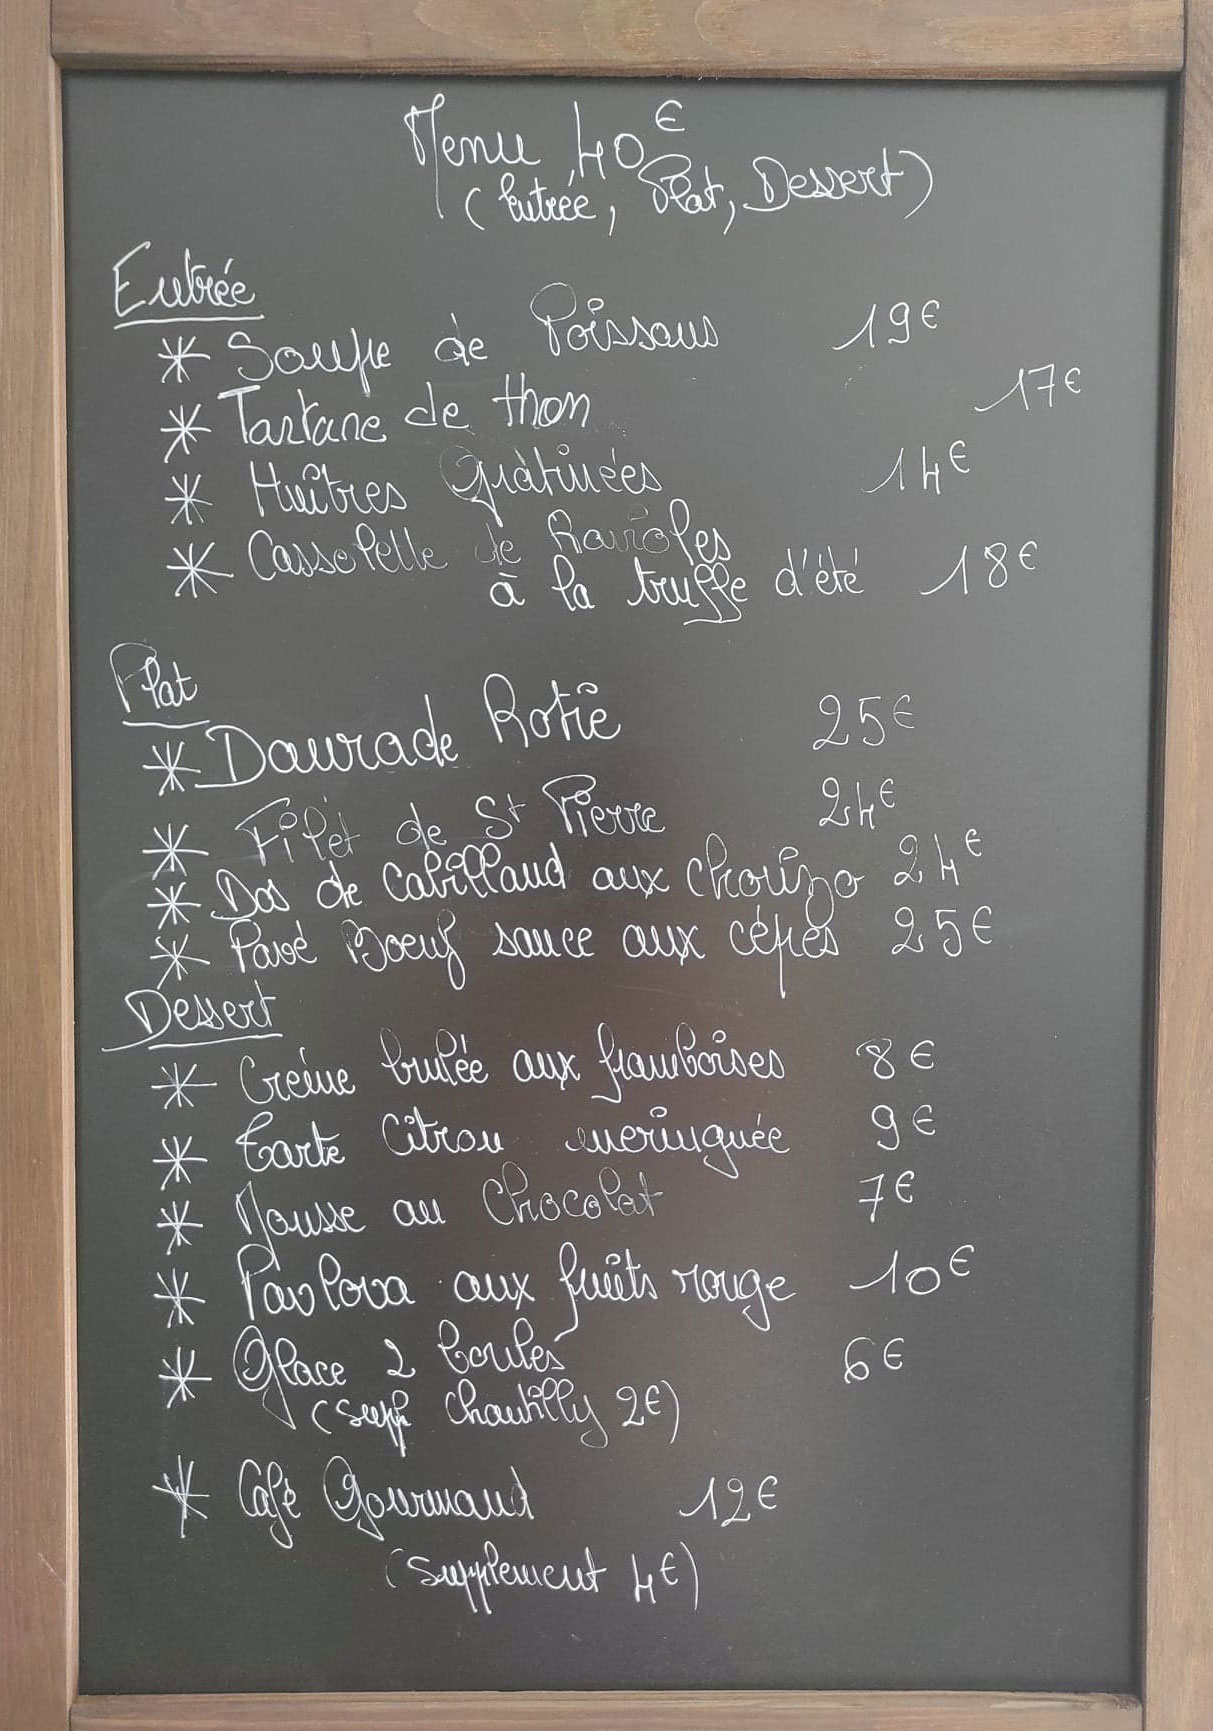 Menu 40€
(Entrée, Plat, Dessert)
Entrée
* Soupe de Poissons 19€
* Tartare de thon 17€
* Huîtres Gratinées 14€
* Cassolette de Ravioles
à la truffe d'été 18€
Plat
* Daurade Rotie 25€
* Filet de St Pierre 24€
* Dos de Cabillaud aux Chorizo 24€
* Pavé Boeuf sauce aux cépes 25€
Dessert
* Crème brulée aux framboises 8€
* Tarte Citron meringuée 9€
* Mousse au Chocolat 7€
* Pavlova aux fruits rouge 10€
* Glace 2 boules 6€
(supp chantilly 2€)
* Café Gourmand 12€
(supplement 4€)